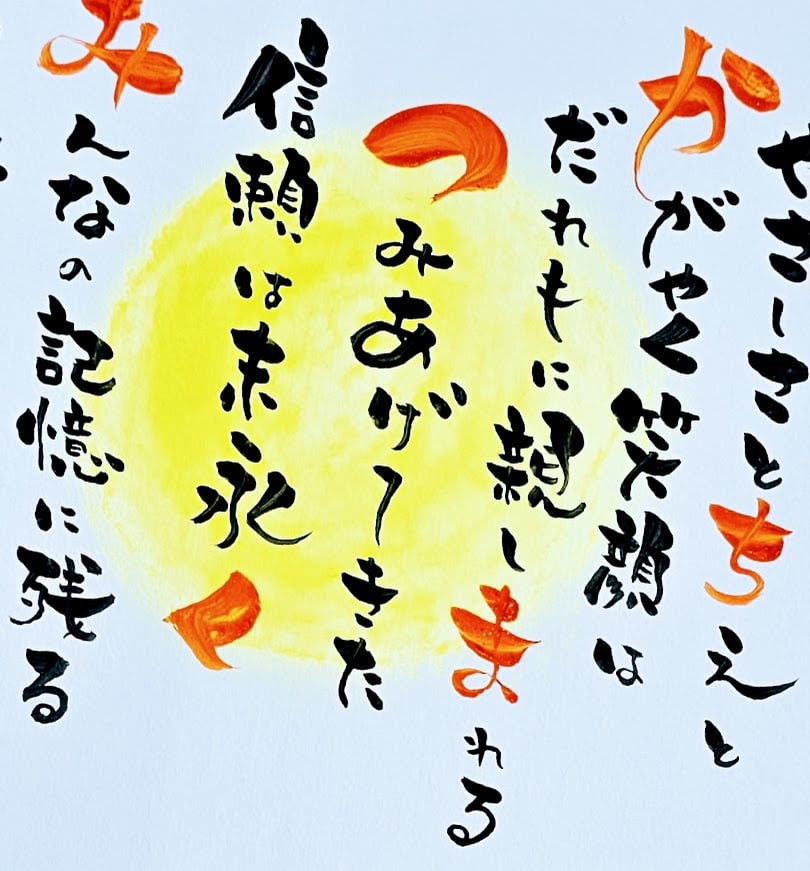 やさしさとちえと
かがやく笑顔は
だれもに親しまれる
つみあげてきた
信頼は末永く
みんなの記憶に残る